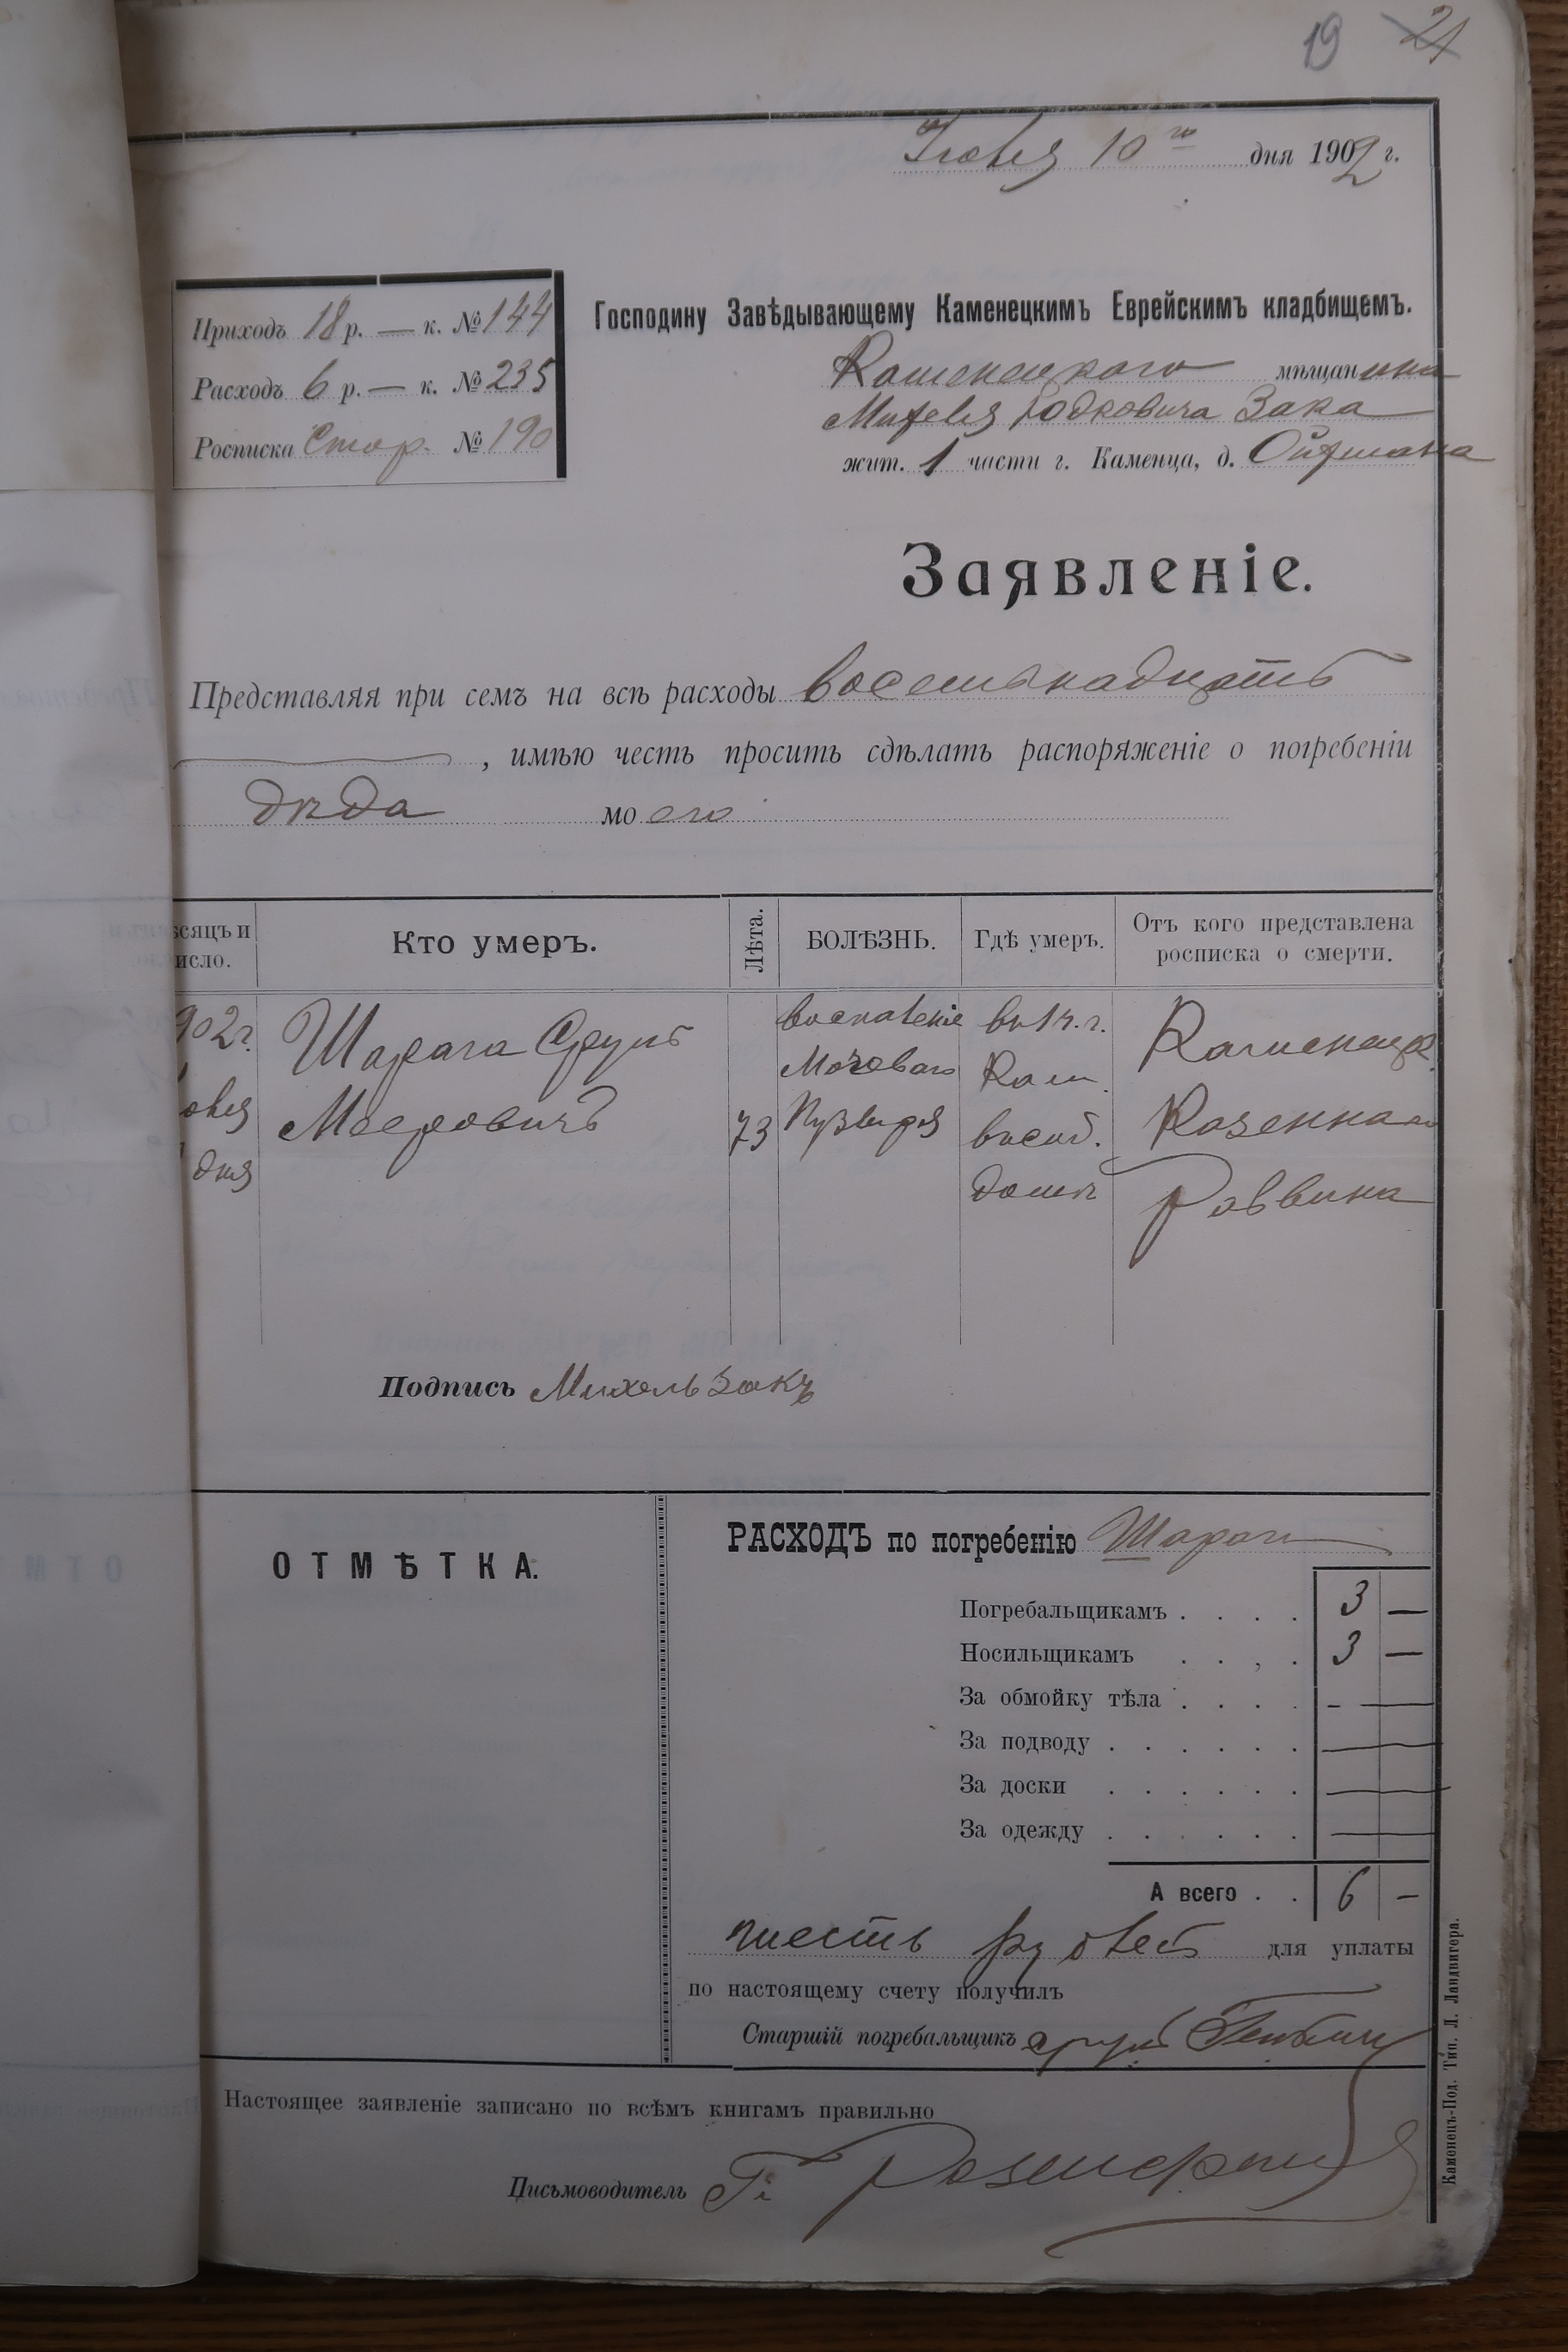 19 21
10го дня 1902 г.
Приходъ 18 р. — к. № 144
Расходъ 6 р. — к. № 235
Росписка Стор. № 190
Господину Завѣдывающему Каменецкимъ Еврейскимъ кладбищемъ.
Каменецкого мѣщанина
Михеля Зака
жит. 1 части г. Каменца, д. Ойхмана
Заявленіе.
Представляя при семъ на всѣ расходы восемьнадцать
, имѣю честь просить сдѣлать распоряженіе о погребеніи
дѣда моего
ѣсяцъ и исло.
Кто умеръ.
Лѣта.
БОЛѢЗНЬ.
Гдѣ умеръ.
Отъ кого представлена
росписка о смерти.
902 г. дня
Шарага Сруль
Меерович
73
воспаленіе
Мочоваго
Пузыря
въ г.
Кам.
въ соб.
домѣ
Каменецк.
Казеннаго
Раввина
Подпись Михель Закъ
ОТМѢТКА.
РАСХОДЪ по погребенію Шараги
Погребальщикамъ . . . . 3 —
Носильщикамъ . . , . 3 —
За обмойку тѣла . . . . - —
За подводу . . . . . . —
За доски . . . . . . —
За одежду . . . . . . —
А всего . . 6 —
шесть рублей для уплаты
по настоящему счету получилъ
Старшій погребальщикъ Сруль
Настоящее заявленіе записано по всѣмъ книгамъ правильно
Письмоводитель Г.
Каменецъ-Под. Тип. Л. Ландвигера.